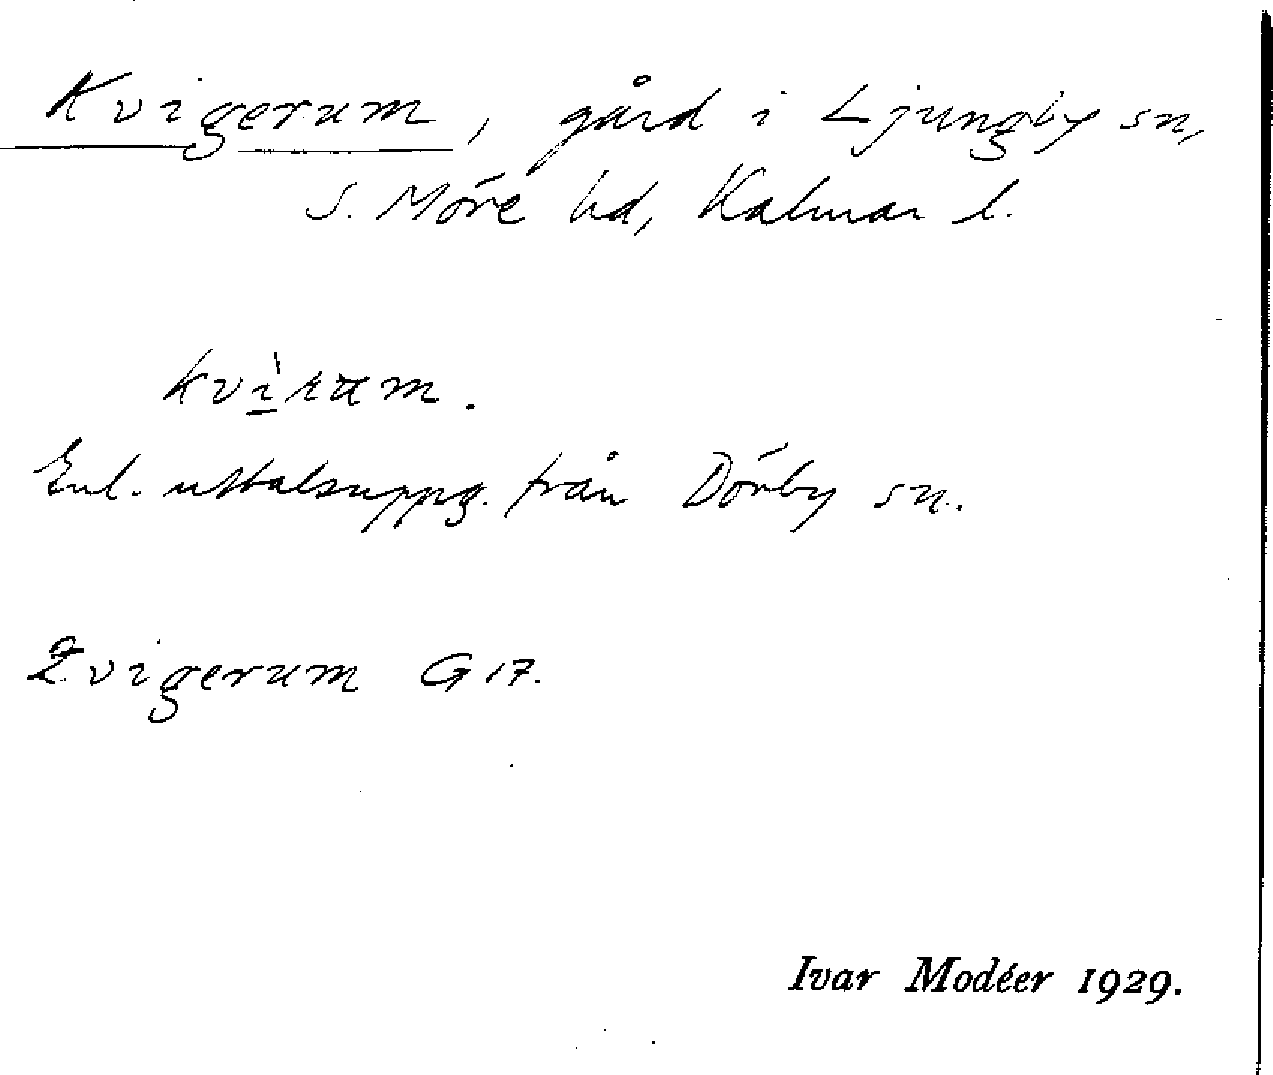 Kvigerum, gård i Ljungby sn,
S. Möre hd, Kalmar l.
Enl. uttalsuppg. från Dörby sn.
Qvigerum G 17.
Ivar Modéer 1929.